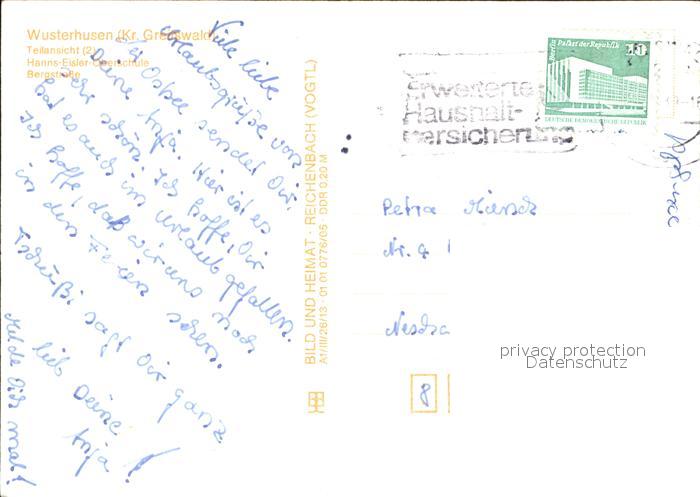 Wusterhusen (Kr. Greifswald)
Teilansicht (2)
Hanns-Eisler-Oberschule
Bergstraße
Viele liebe
Urlaubsgrüße von
der Ostsee sendet Dir
Deine Anja. Hier ist es
sehr schön. Ich hoffe, Dir
hat es auch im Urlaub gefallen.
Ich hoffe, daß wir uns noch
in den Ferien sehen.
Tschüßi sagt Dir ganz
lieb Deine
Anja!
Melde Dich mal!
BILD UND HEIMAT · REICHENBACH (VOGTL)
A1/III/26/13 · 01 01 0776/05 · DDR 0,20 M
Erweiterte
Haushalt-
versicherung
Berlin Palast der Republik
DEUTSCHE DEMOKRATISCHE REPUBLIK
Petra
Nr. 9
8
privacy protection
Datenschutz